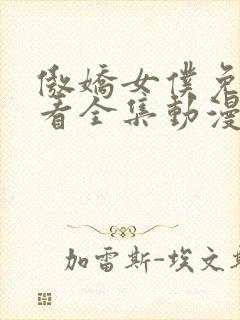 傲嬌女僕免
看全集動漫
加雷斯-埃文斯